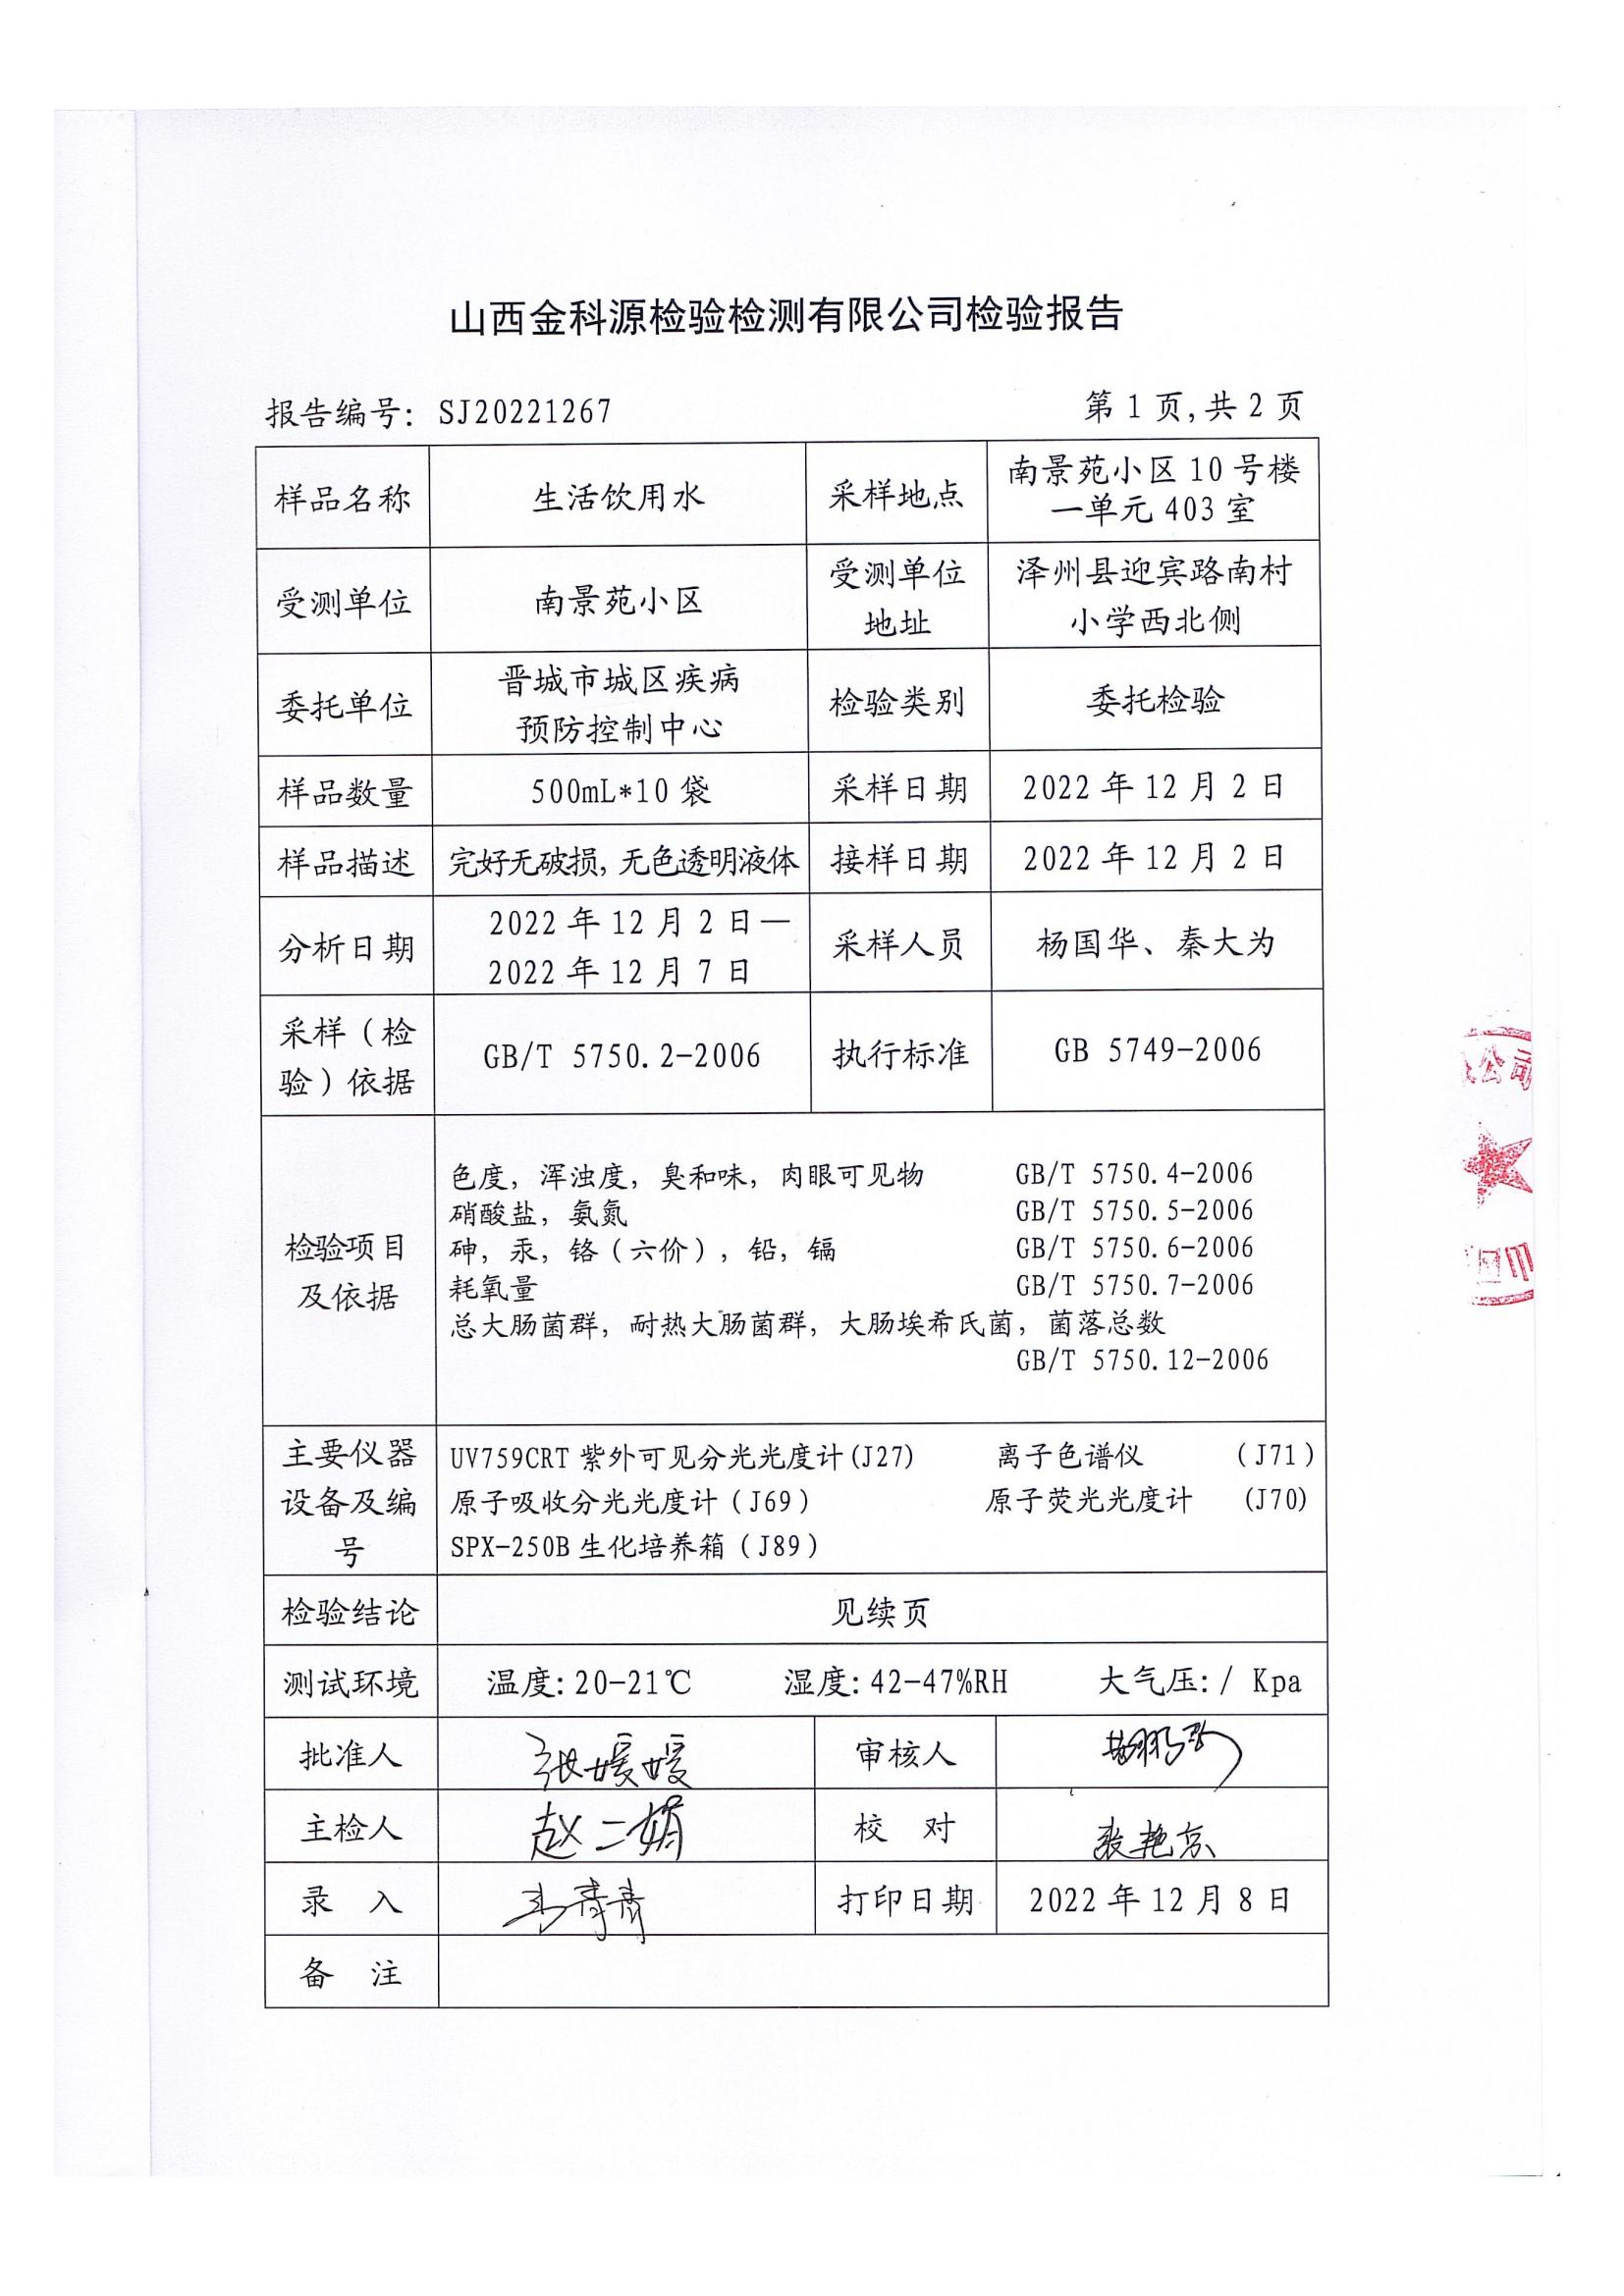 山西金科源检验检测有限公司检验报告
报告编号: SJ20221267
第 1 页,共 2 页
样品名称
生活饮用水
采样地点
南景苑小区 10 号楼
一单元 403 室
受测单位
南景苑小区
受测单位
地址
泽州县迎宾路南村
小学西北侧
委托单位
晋城市城区疾病
预防控制中心
检验类别
委托检验
样品数量
500mL*10 袋
采样日期
2022 年 12 月 2 日
样品描述
完好无破损, 无色透明液体
接样日期
2022 年 12 月 2 日
分析日期
2022 年 12 月 2 日—
2022 年 12 月 7 日
采样人员
杨国华、秦大为
采样（检
验）依据
GB/T 5750.2-2006
执行标准
GB 5749-2006
检验项目
及依据
色度, 浑浊度, 臭和味, 肉眼可见物 GB/T 5750.4-2006
硝酸盐, 氨氮 GB/T 5750.5-2006
砷, 汞, 铬（六价）, 铅, 镉 GB/T 5750.6-2006
耗氧量 GB/T 5750.7-2006
总大肠菌群, 耐热大肠菌群, 大肠埃希氏菌, 菌落总数
GB/T 5750.12-2006
主要仪器
设备及编
号
UV759CRT 紫外可见分光光度计(J27) 离子色谱仪 （J71）
原子吸收分光光度计（J69） 原子荧光光度计 (J70)
SPX-250B 生化培养箱（J89）
检验结论
见续页
测试环境
温度: 20-21℃ 湿度: 42-47%RH 大气压: / Kpa
批准人
张媛媛
审核人
主检人
赵二娟
校 对
张艳京
录 入
打印日期
2022 年 12 月 8 日
备 注
公司